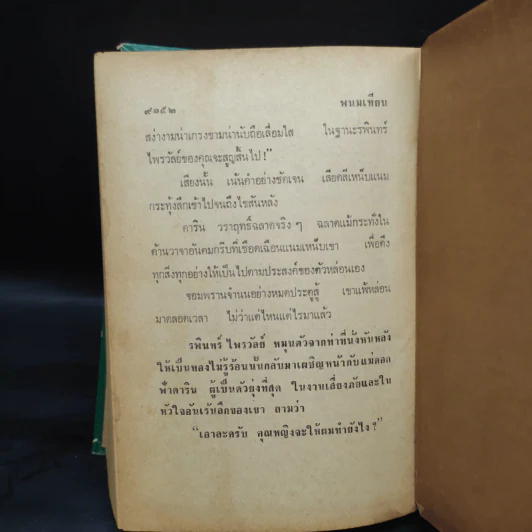 ๙๑๕๒ พนมเทียน
สง่างามน่าเกรงขามน่านับถือเลื่อมใส ในฐานะรพินทร์
ไพรวัลย์ของคุณจะสูญสิ้นไป!"
เสียงนั้น เน้นคำอย่างชัดเจน เสือดสีเหน็บแนม
กระทุ้งลึกเข้าไปจนถึงไขสันหลัง
ดาริน วราฤทธิ์ฉลาดจริง ๆ ฉลาดแม้กระทั่งใน
ด้านวาจาอันคมกริบที่เชือดเฉือนแนมเหน็บเขา เพื่อดึง
ทุกสิ่งทุกอย่างให้เป็นไปตามประสงค์ของตัวหล่อนเอง
จอมพรานจำนนอย่างหมดประตูสู้ เขาแพ้หล่อน
มาตลอดเวลา ไม่ว่าแต่ไหนแต่ไรมาแล้ว
รพินทร์ ไพรวัลย์ หมุนตัวจากท่าที่นั่งหันหลัง
ให้เป็นทองไม่รู้ร้อนนั้นกลับมาเผชิญหน้ากับแม่ดอก
ฟ้าดาริน ผู้เป็นตัวยุ่งที่สุด ในงานเสี่ยงภัยและใน
หัวใจอันเร้นลึกของเขา ถามว่า
"เอาละครับ คุณหญิงจะให้ผมทำยังไง?"